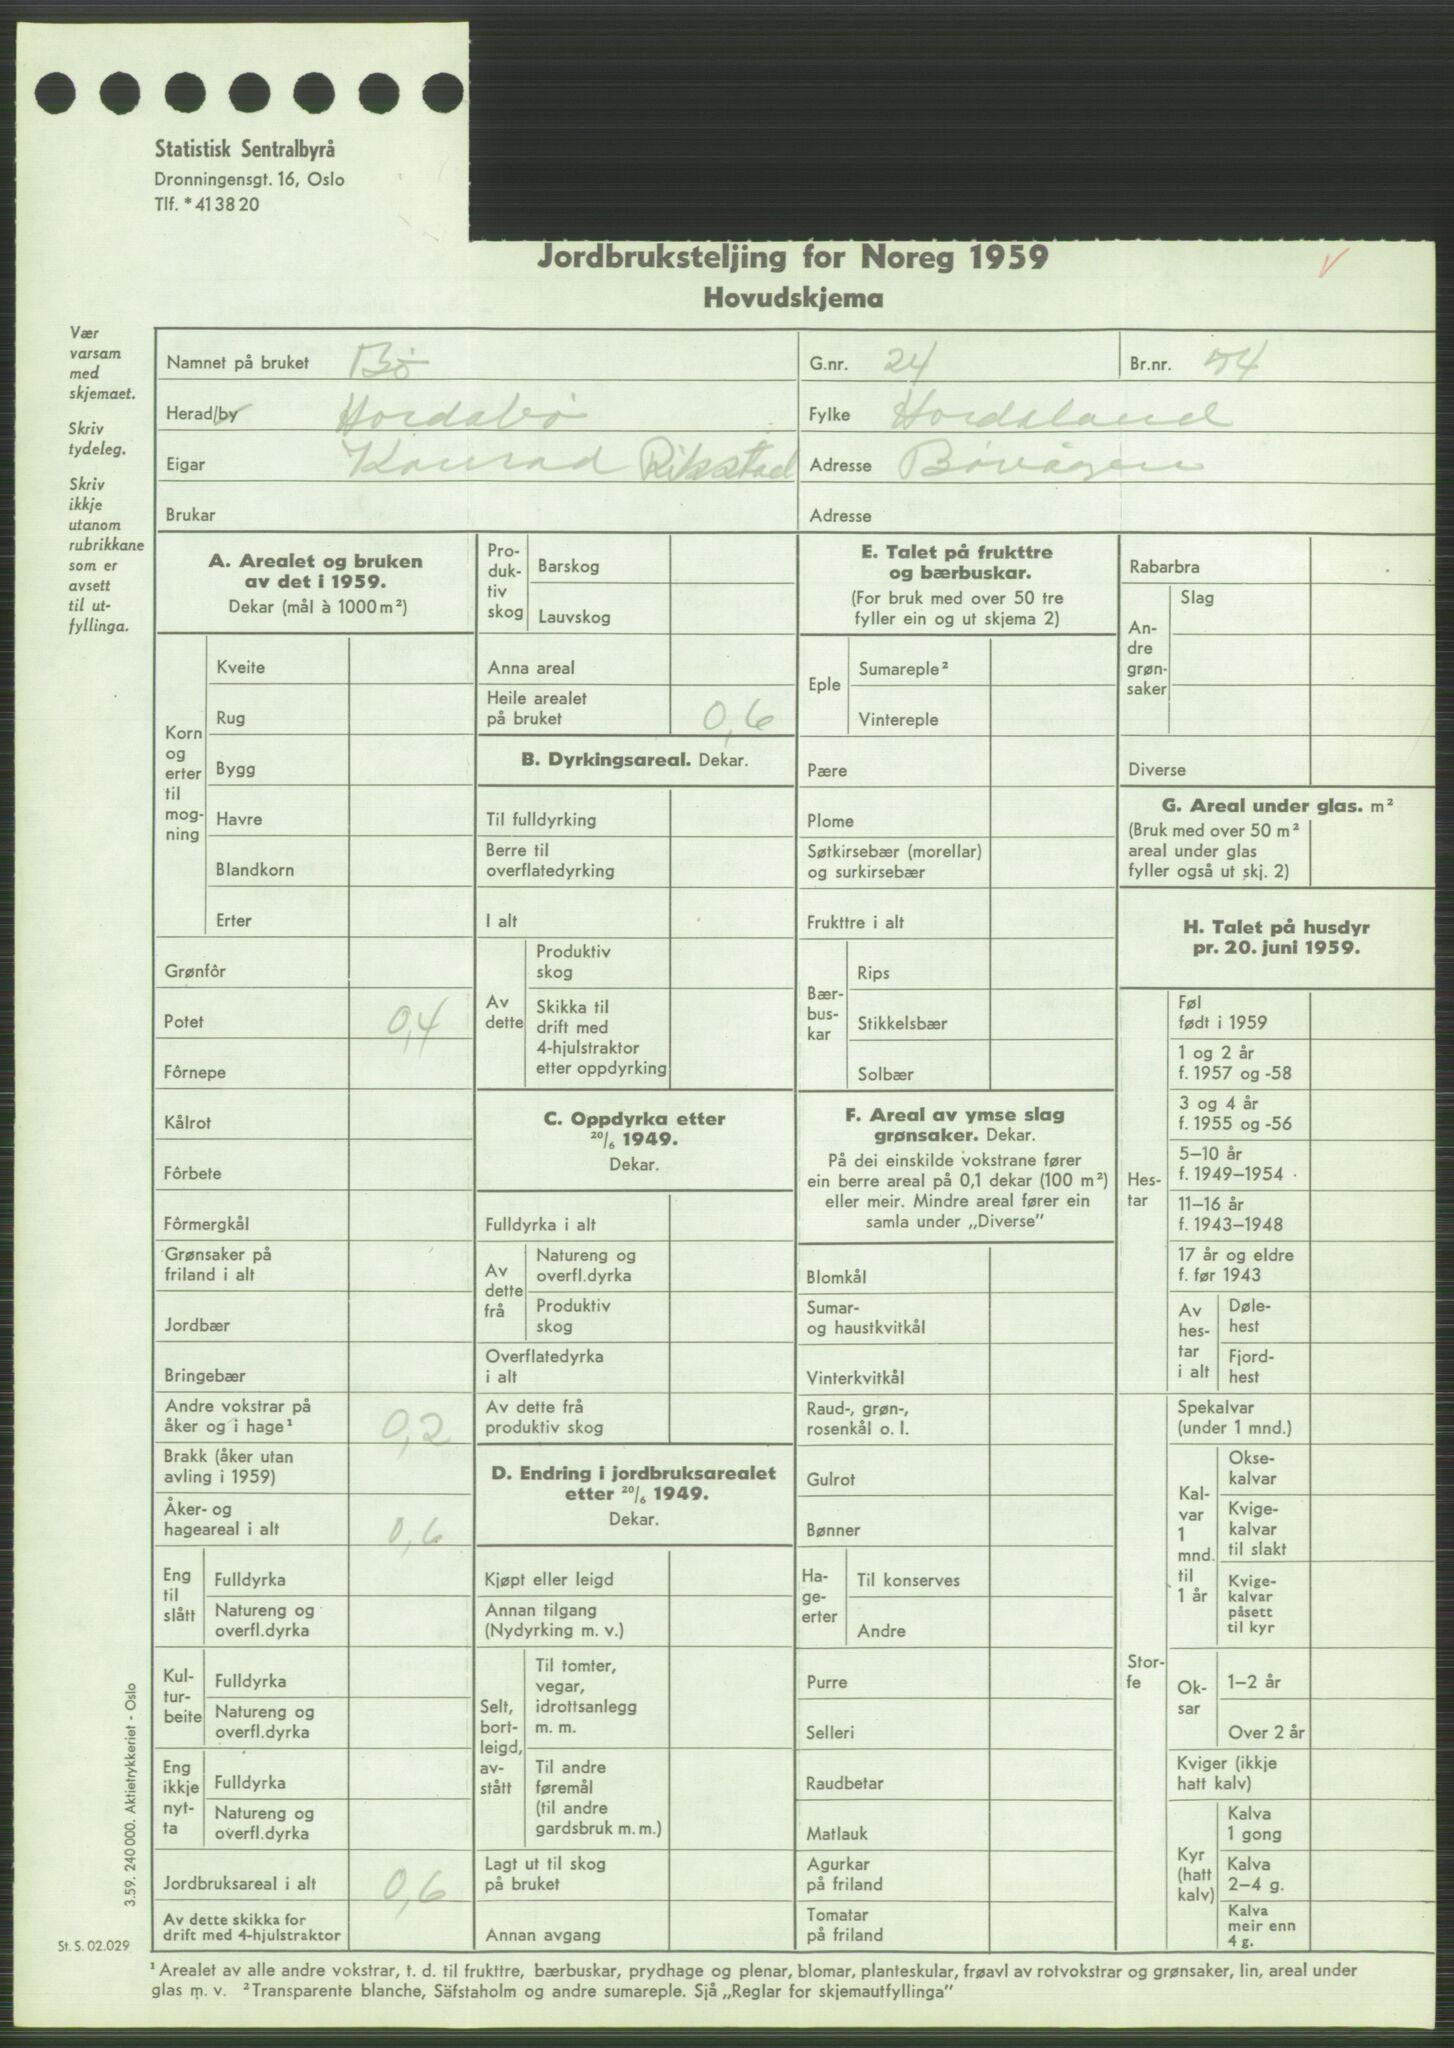 Statistisk Sentralbyrå
Dronningensgt. 16, Oslo
Tlf. * 41 38 20
Jordbruksteljing for Noreg 1959
Hovudskjema
Vær
varsam
med
skjemaet.
Skriv
tydeleg.
Skriv
ikkje
utanom
rubrikkane
som er
avsett
til ut-
fyllinga.
Namnet på bruket Bø G.nr. 24 Br.nr. 74
Herad/by Hordabø Fylke Hordaland
Eigar Konrad Rikstad Adresse Bøvågen
Brukar Adresse
A. Arealet og bruken
av det i 1959.
Dekar (mål à 1000 m²)
Korn
og
erter
til
mog-
ning
Kveite
Rug
Bygg
Havre
Blandkorn
Erter
Grønfôr
Potet 0,4
Fôrnepe
Kålrot
Fôrbete
Fôrmergkål
Grønsaker på
friland i alt
Jordbær
Bringebær
Andre vokstrar på
åker og i hage¹ 0,2
Brakk (åker utan
avling i 1959)
Åker- og
hageareal i alt 0,6
Eng
til
slått
Fulldyrka
Natureng og
overfl.dyrka
Kul-
tur-
beite
Fulldyrka
Natureng og
overfl.dyrka
Eng
ikkje
nyt-
ta
Fulldyrka
Natureng og
overfl.dyrka
Jordbruksareal i alt 0,6
Av dette skikka for
drift med 4-hjulstraktor
Pro-
duk-
tiv
skog
Barskog
Lauvskog
Anna areal
Heile arealet
på bruket 0,6
B. Dyrkingsareal. Dekar.
Til fulldyrking
Berre til
overflatedyrking
I alt
Av
dette
Produktiv
skog
Skikka til
drift med
4-hjulstraktor
etter oppdyrking
C. Oppdyrka etter
20/6 1949.
Dekar.
Fulldyrka i alt
Av
dette
frå
Natureng og
overfl.dyrka
Produktiv
skog
Overflatedyrka
i alt
Av dette frå
produktiv skog
D. Endring i jordbruksarealet
etter 20/6 1949.
Dekar.
Kjøpt eller leigd
Annan tilgang
(Nydyrking m. v.)
Selt,
bort-
leigd,
av-
stått
Til tomter,
vegar,
idrottsanlegg
m. m.
Til andre
føremål
(til andre
gardsbruk m. m.)
Lagt ut til skog
på bruket
Annan avgang
E. Talet på frukttre
og bærbuskar.
(For bruk med over 50 tre
fyller ein og ut skjema 2)
Eple
Sumareple²
Vintereple
Pære
Plome
Søtkirsebær (morellar)
og surkirsebær
Frukttre i alt
Bær-
bus-
kar
Rips
Stikkelsbær
Solbær
F. Areal av ymse slag
grønsaker. Dekar.
På dei einskilde vokstrane fører
ein berre areal på 0,1 dekar (100 m²)
eller meir. Mindre areal fører ein
samla under „Diverse”
Blomkål
Sumar-
og haustkvitkål
Vinterkvitkål
Raud-, grøn-,
rosenkål o. l.
Gulrot
Bønner
Ha-
ge-
erter
Til konserves
Andre
Purre
Selleri
Raudbetar
Matlauk
Agurkar
på friland
Tomatar
på friland
Rabarbra
An-
dre
grøn-
saker
Slag
Diverse
G. Areal under glas. m²
(Bruk med over 50 m²
areal under glas
fyller også ut skj. 2)
H. Talet på husdyr
pr. 20. juni 1959.
Hes-
tar
Føl
født i 1959
1 og 2 år
f. 1957 og -58
3 og 4 år
f. 1955 og -56
5–10 år
f. 1949–1954
11–16 år
f. 1943–1948
17 år og eldre
f. før 1943
Av
hes-
tar
i alt
Døle-
hest
Fjord-
hest
Stor-
fe
Spekalvar
(under 1 mnd.)
Kal-
var
1
mnd.
til
1 år
Okse-
kalvar
Kvige-
kalvar
til slakt
Kvige-
kalvar
påsett
til kyr
Ok-
sar
1–2 år
Over 2 år
Kviger (ikkje
hatt kalv)
Kyr
(hatt
kalv)
Kalva
1 gong
Kalva
2–4 g.
Kalva
meir enn
4 g.
3.59. 240 000. Aktietrykkeriet - Oslo
St. S. 02.029
¹ Arealet av alle andre vokstrar, t. d. til frukttre, bærbuskar, prydhage og plenar, blomar, planteskular, frøavl av rotvokstrar og grønsaker, lin, areal under
glas m. v. ² Transparente blanche, Säfstaholm og andre sumareple. Sjå „Reglar for skjemautfyllinga”